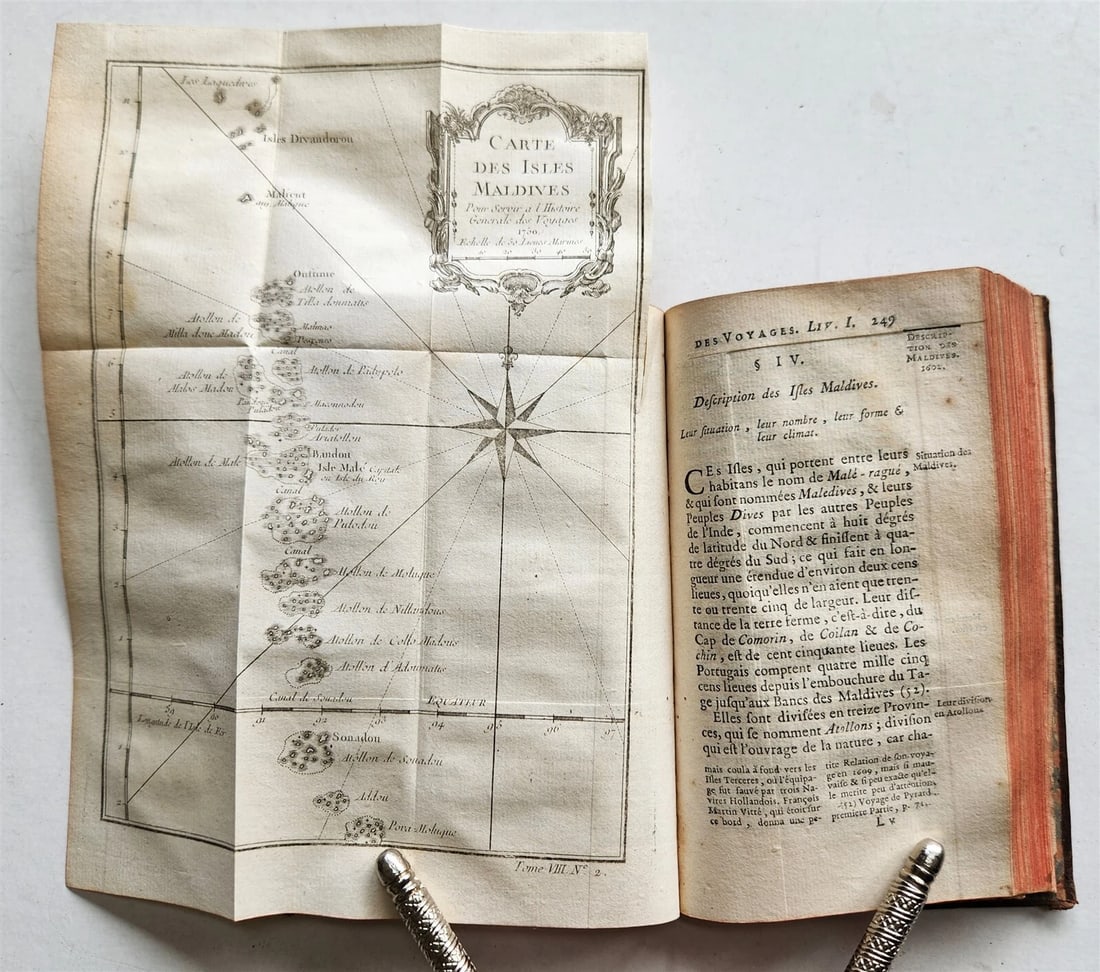 Les Laquedives
Isles Divandorou
Malicut
CARTE
DES ISLES
MALDIVES
Pour Servir a l'Histoire
Generale des Voyages
1750.
Echelle de 50 Lieues Marines
10 20 30 40 50
Outime
Atollon de
Tilla doumatis
Atollon de
Milla doue Madou
Canal
Atollon de Padypolo
Atollon de
Malos Madou
Ariatollon
Atollon de Male
Bandou
Isle Malé Capitale
ou Isle du Roy
Canal
Atollon de
Pulodou
Canal
Atollon de Moluque
Atollon de Nillandous
Atollon de Collo Madous
Atollon d'Adoumatis
Canal de Souadou
EQUATEUR
89 90 91 92 93 94 95 96 97
Longitude de l'Isle de Fer
Souadou
Atollon de Souadou
Addou
Pova-Moluque
Tome VIII. N.º 2.
DES VOYAGES. LIV. I. 249
DESCRIP-
TION DES
MALDIVES.
1602.
§ IV.
Description des Isles Maldives.
Leur situation, leur nombre, leur forme &
leur climat.
CEs Isles, qui portent entre leurs
habitans le nom de Malé-ragué,
& qui sont nommées Maledives, & leurs
Peuples Dives par les autres Peuples
de l'Inde, commencent à huit dégrés
de latitude du Nord & finissent à qua-
tre dégrés du Sud; ce qui fait en lon-
gueur une étendue d'environ deux cens
lieues, quoiqu'elles n'en aient que tren-
te ou trente cinq de largeur. Leur dis-
tance de la terre ferme, c'est-à-dire, du
Cap de Comorin, de Coilan & de Co-
chin, est de cent cinquante lieues. Les
Portugais comptent quatre mille cinq
cens lieues depuis l'embouchure du Ta-
ge jusqu'aux Bancs des Maldives (52).
Elles sont divisées en treize Provin-
ces, qui se nomment Atollons; division
qui est l'ouvrage de la nature, car cha-
Situation des
Maldives.
Leur division
en Atollons
mais coula à fond vers les
Isles Terceres, où l'équipa-
ge fut sauvé par trois Na-
vires Hollandois. François
Martin Vitré, qui étoit sur
ce bord, donna une pe-
tite Relation de son voya-
ge en 1609, mais si mau-
vaise & si peu exacte qu'el-
le merite peu d'attention.
(52) Voyage de Pyrard.
premiere Partie, p. 71.
L v